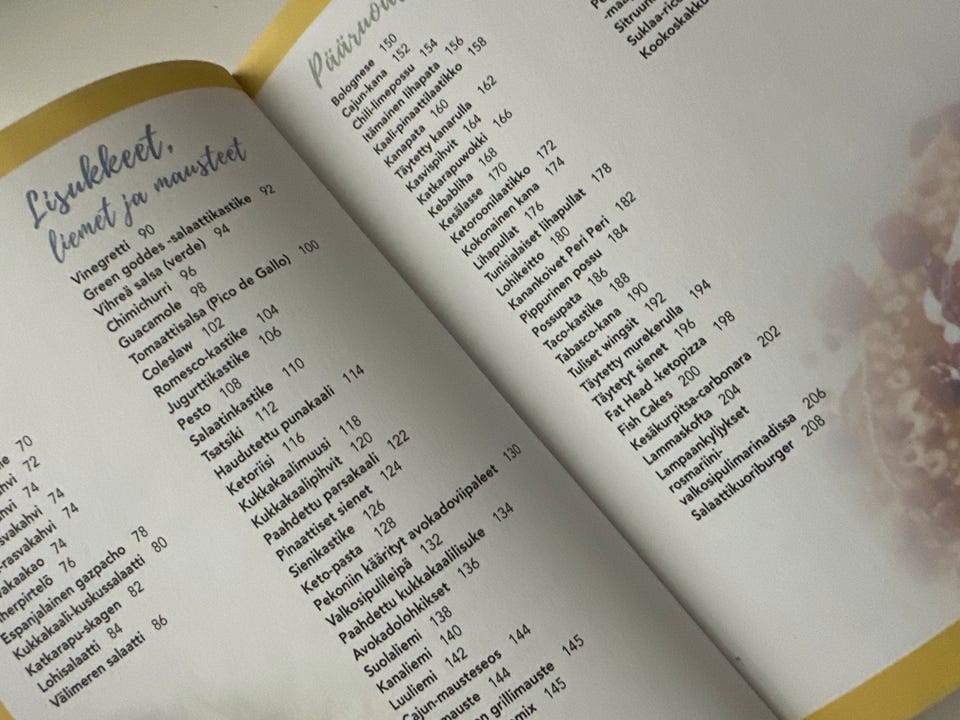 70
hvi 72
hvi 74
svakahvi 74
-rasvakahvi 74
vakaakao 74
herpirtelö 76
Espanjalainen gazpacho 78
Kukkakaali-kuskussalaatti 80
Katkarapu-skagen 82
Lohisalaatti 84
Välimeren salaatti 86
Lisukkeet,
liemet ja mausteet
Vinegretti 90
Green goddes -salaattikastike 92
Vihreä salsa (verde) 94
Chimichurri 96
Guacamole 98
Tomaattisalsa (Pico de Gallo) 100
Coleslaw 102
Romesco-kastike 104
Jugurttikastike 106
Pesto 108
Salaatinkastike 110
Tsatsiki 112
Haudutettu punakaali 114
Ketoriisi 116
Kukkakaalimuusi 118
Kukkakaalipihvit 120
Paahdettu parsakaali 122
Pinaattiset sienet 124
Sienikastike 126
Keto-pasta 128
Pekoniin käärityt avokadoviipaleet 130
Valkosipulileipä 132
Paahdettu kukkakaalilisuke 134
Avokadolohkikset 136
Suolaliemi 138
Kanaliemi 140
Luuliemi 142
Cajun-mausteseos 144
mauste 144
en grillimauste 145
mix 145
Pääruoat
Bolognese 150
Cajun-kana 152
Chili-limepossu 154
Itämainen lihapata 156
Kaali-pinaattilaatikko 158
Kanapata 160
Täytetty kanarulla 162
Kasvispihvit 164
Katkarapuwokki 166
Kebabliha 168
Kesälasse 170
Ketoroonilaatikko 172
Kokonainen kana 174
Lihapullat 176
Tunisialaiset lihapullat 178
Lohikeitto 180
Kanankoivet Peri Peri 182
Pippurinen possu 184
Possupata 186
Taco-kastike 188
Tabasco-kana 190
Tuliset wingsit 192
Täytetty murekerulla 194
Täytetyt sienet 196
Fat Head -ketopizza 198
Fish Cakes 200
Kesäkurpitsa-carbonara 202
Lammaskofta 204
Lampaankyljykset
rosmariini-
valkosipulimarinadissa 206
Salaattikuoriburger 208
-ma
Sitruun
Suklaa-rico
Kookoskakku